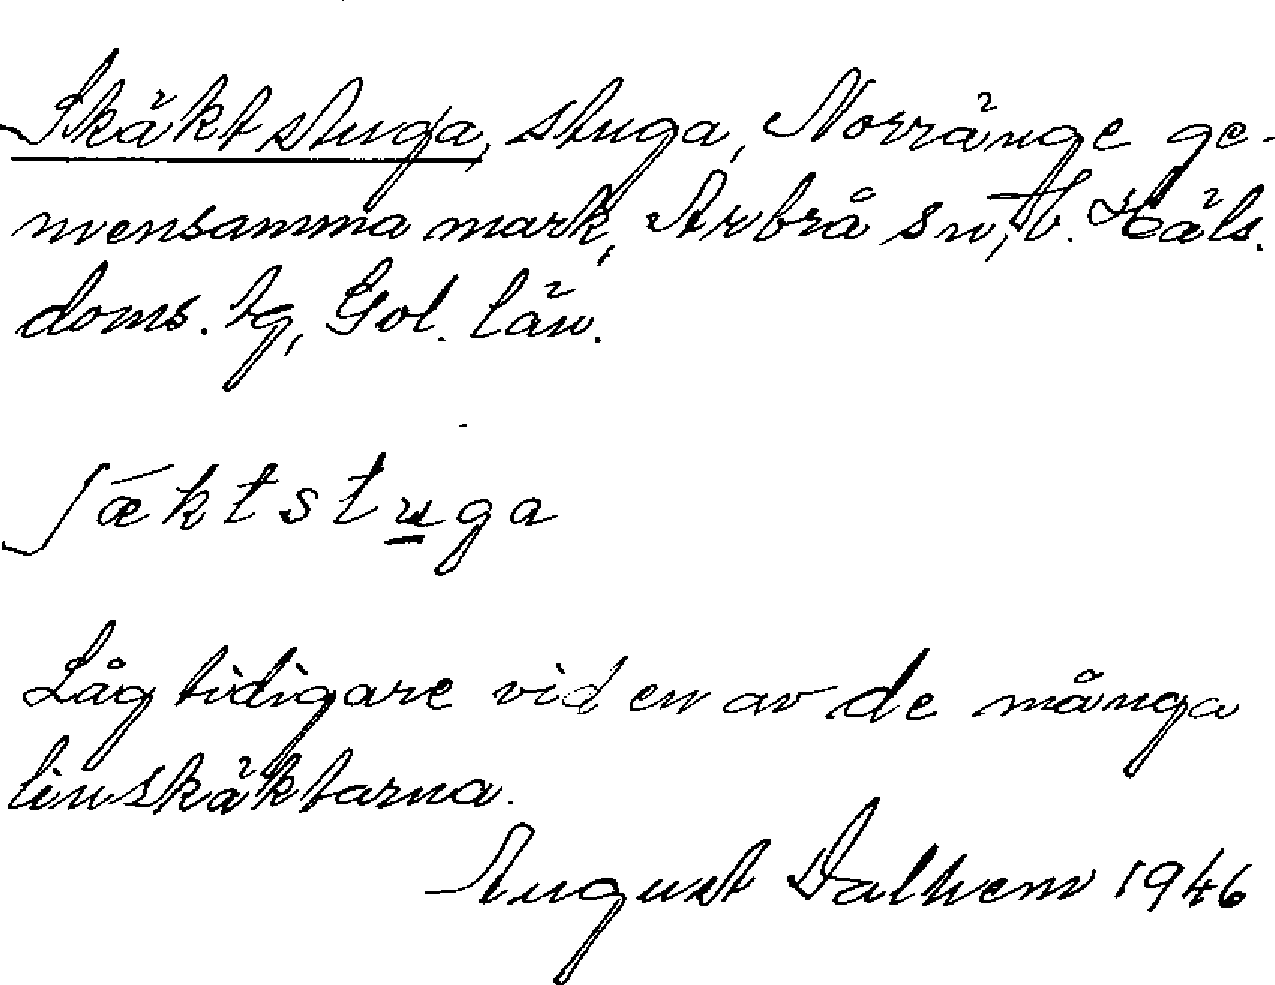 Skäktstuga, stuga, Norränge ge-
mensamma mark, Arbrå sn, v. Häls.
doms. tg, Gol. län.
ʃæktstuga
Låg tidigare vid en av de många
linskäktarna.
August Dalhem 1946